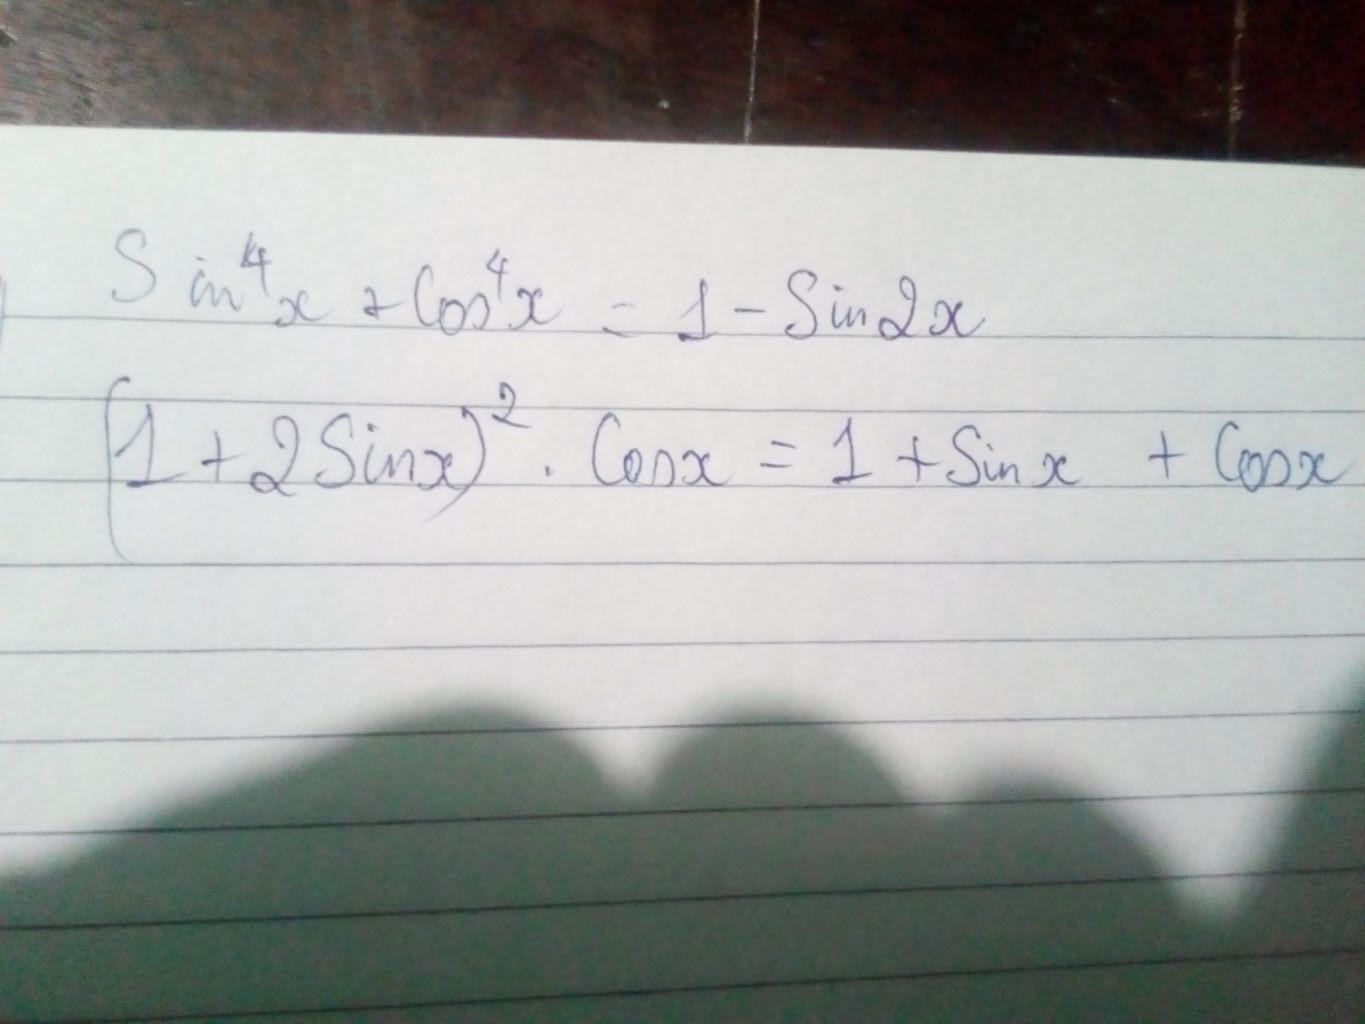 Sin⁴x + Cos⁴x = 1 - Sin2x
(1 + 2Sinx)² . Cosx = 1 + Sinx + Cosx